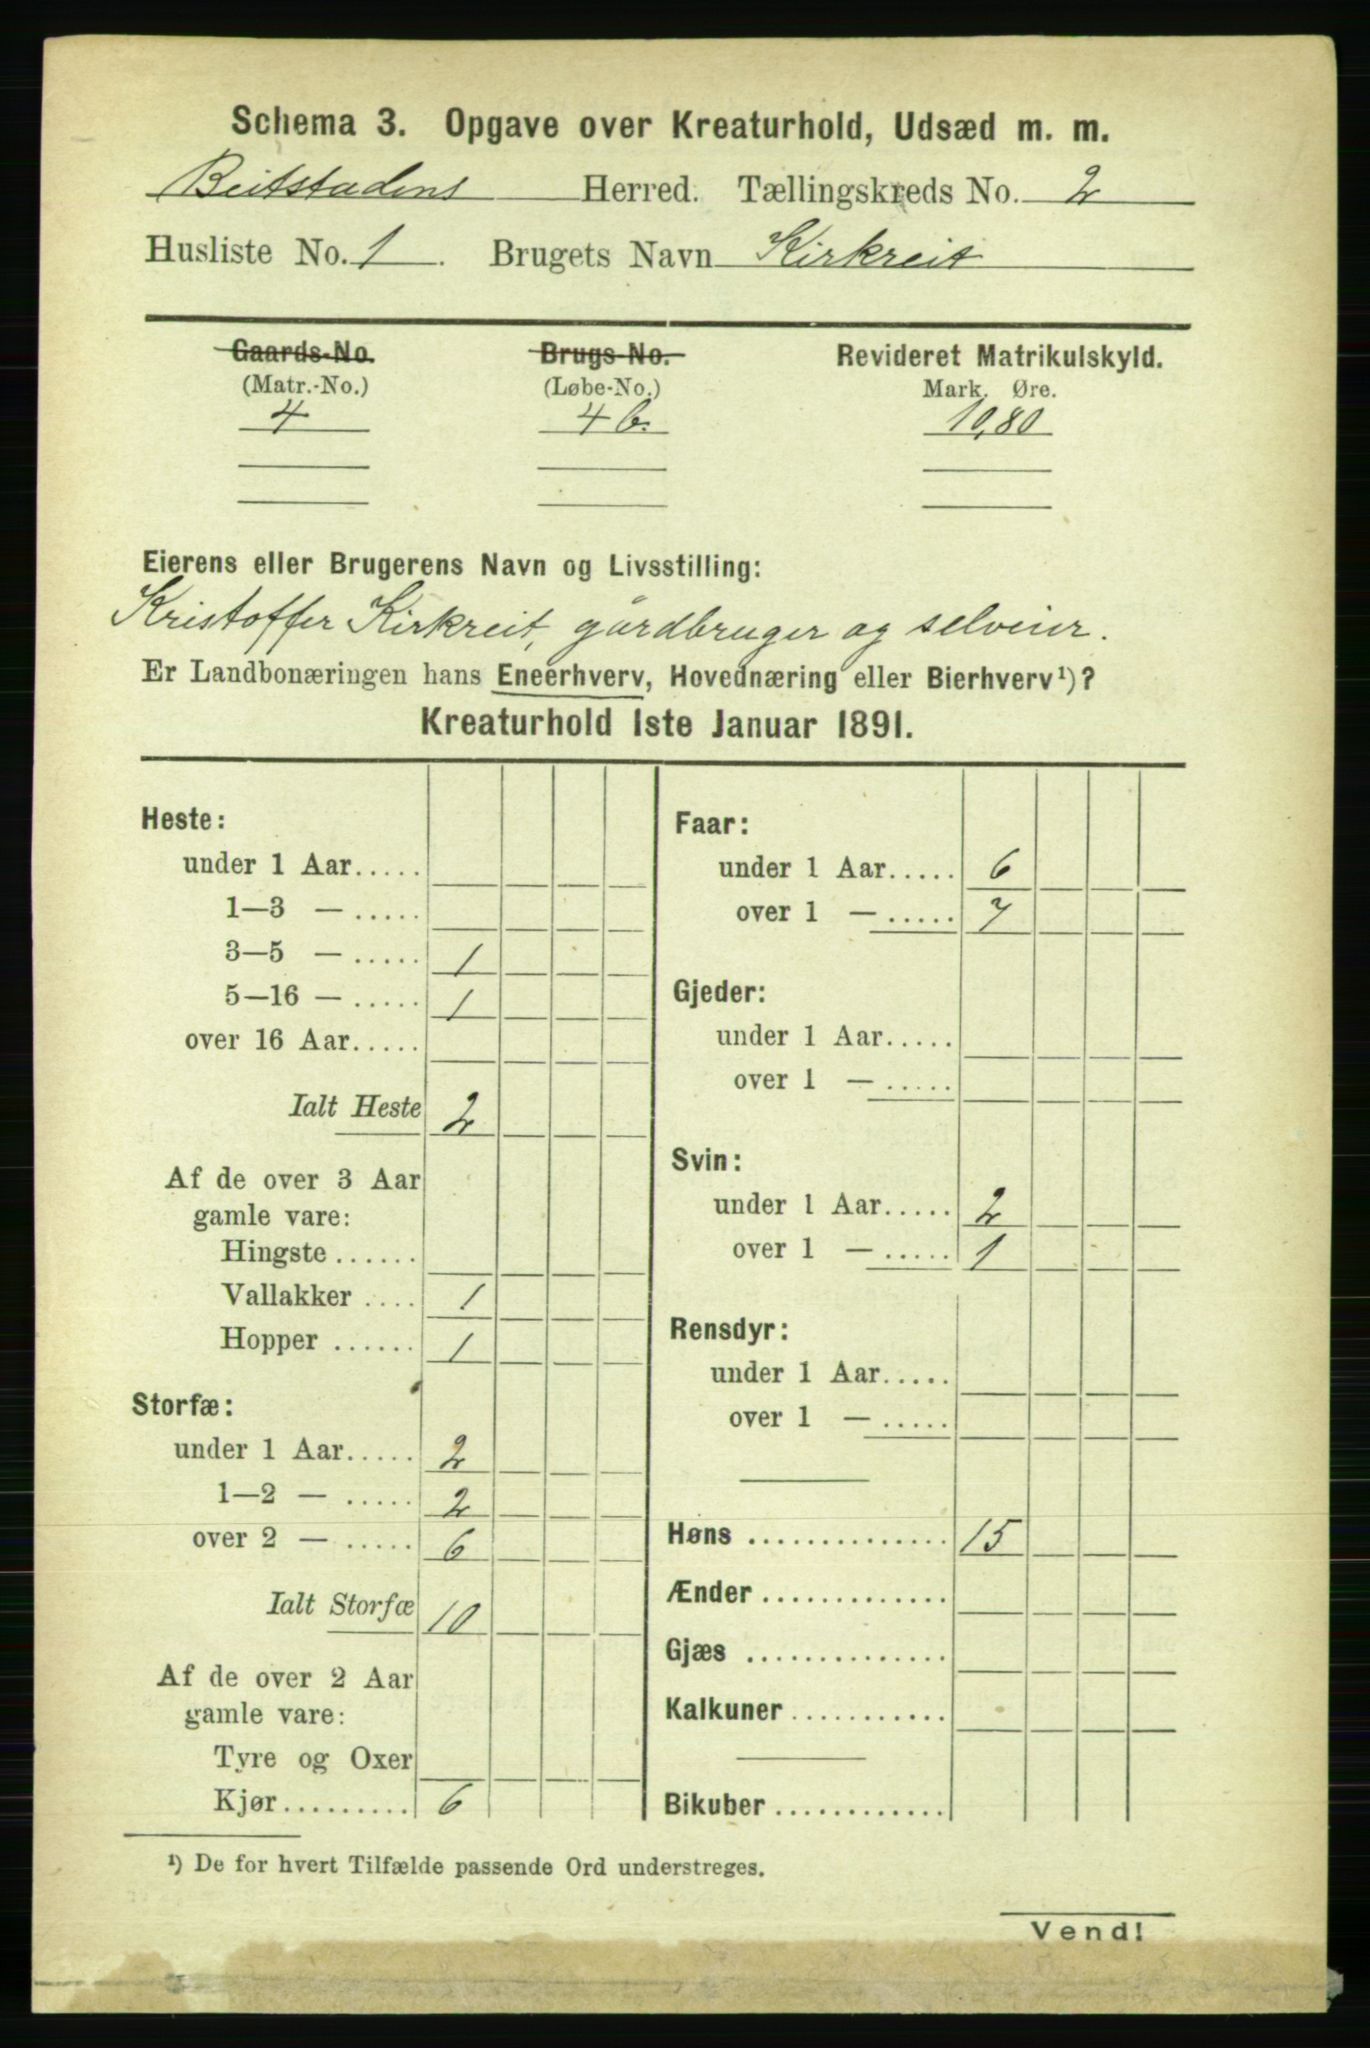 Schema 3. Opgave over Kreaturhold, Udsæd m. m.
Beitstadens Herred. Tællingskreds No. 2
Husliste No. 1. Brugets Navn Kirkreit
Gaards-No. Brugs-No. Revideret Matrikulskyld.
(Matr.-No.) (Løbe-No.) Mark. Øre.
4 4 b. 10,80
Eierens eller Brugerens Navn og Livsstilling:
Kristoffer Kirkreit, gårdbruger og selveier.
Er Landbonæringen hans Eneerhverv, Hovednæring eller Bierhverv¹)?
Kreaturhold 1ste Januar 1891.
Heste:
under 1 Aar.....
1—3 — .....
3—5 — ..... 1
5—16 — ..... 1
over 16 Aar.....
Ialt Heste 2
Af de over 3 Aar
gamle vare:
Hingste ......
Vallakker .... 1
Hopper ...... 1
Storfæ:
under 1 Aar..... 2
1—2 — ..... 2
over 2 — ..... 6
Ialt Storfæ 10
Af de over 2 Aar
gamle vare:
Tyre og Oxer
Kjør.......... 6
Faar:
under 1 Aar..... 6
over 1 — ..... 7
Gjeder:
under 1 Aar.....
over 1 — .....
Svin:
under 1 Aar..... 2
over 1 — ..... 1
Rensdyr:
under 1 Aar.....
over 1 — .....
Høns ............... 15
Ænder .............
Gjæs ..............
Kalkuner ...........
Bikuber .............
¹) De for hvert Tilfælde passende Ord understreges.
Vend!